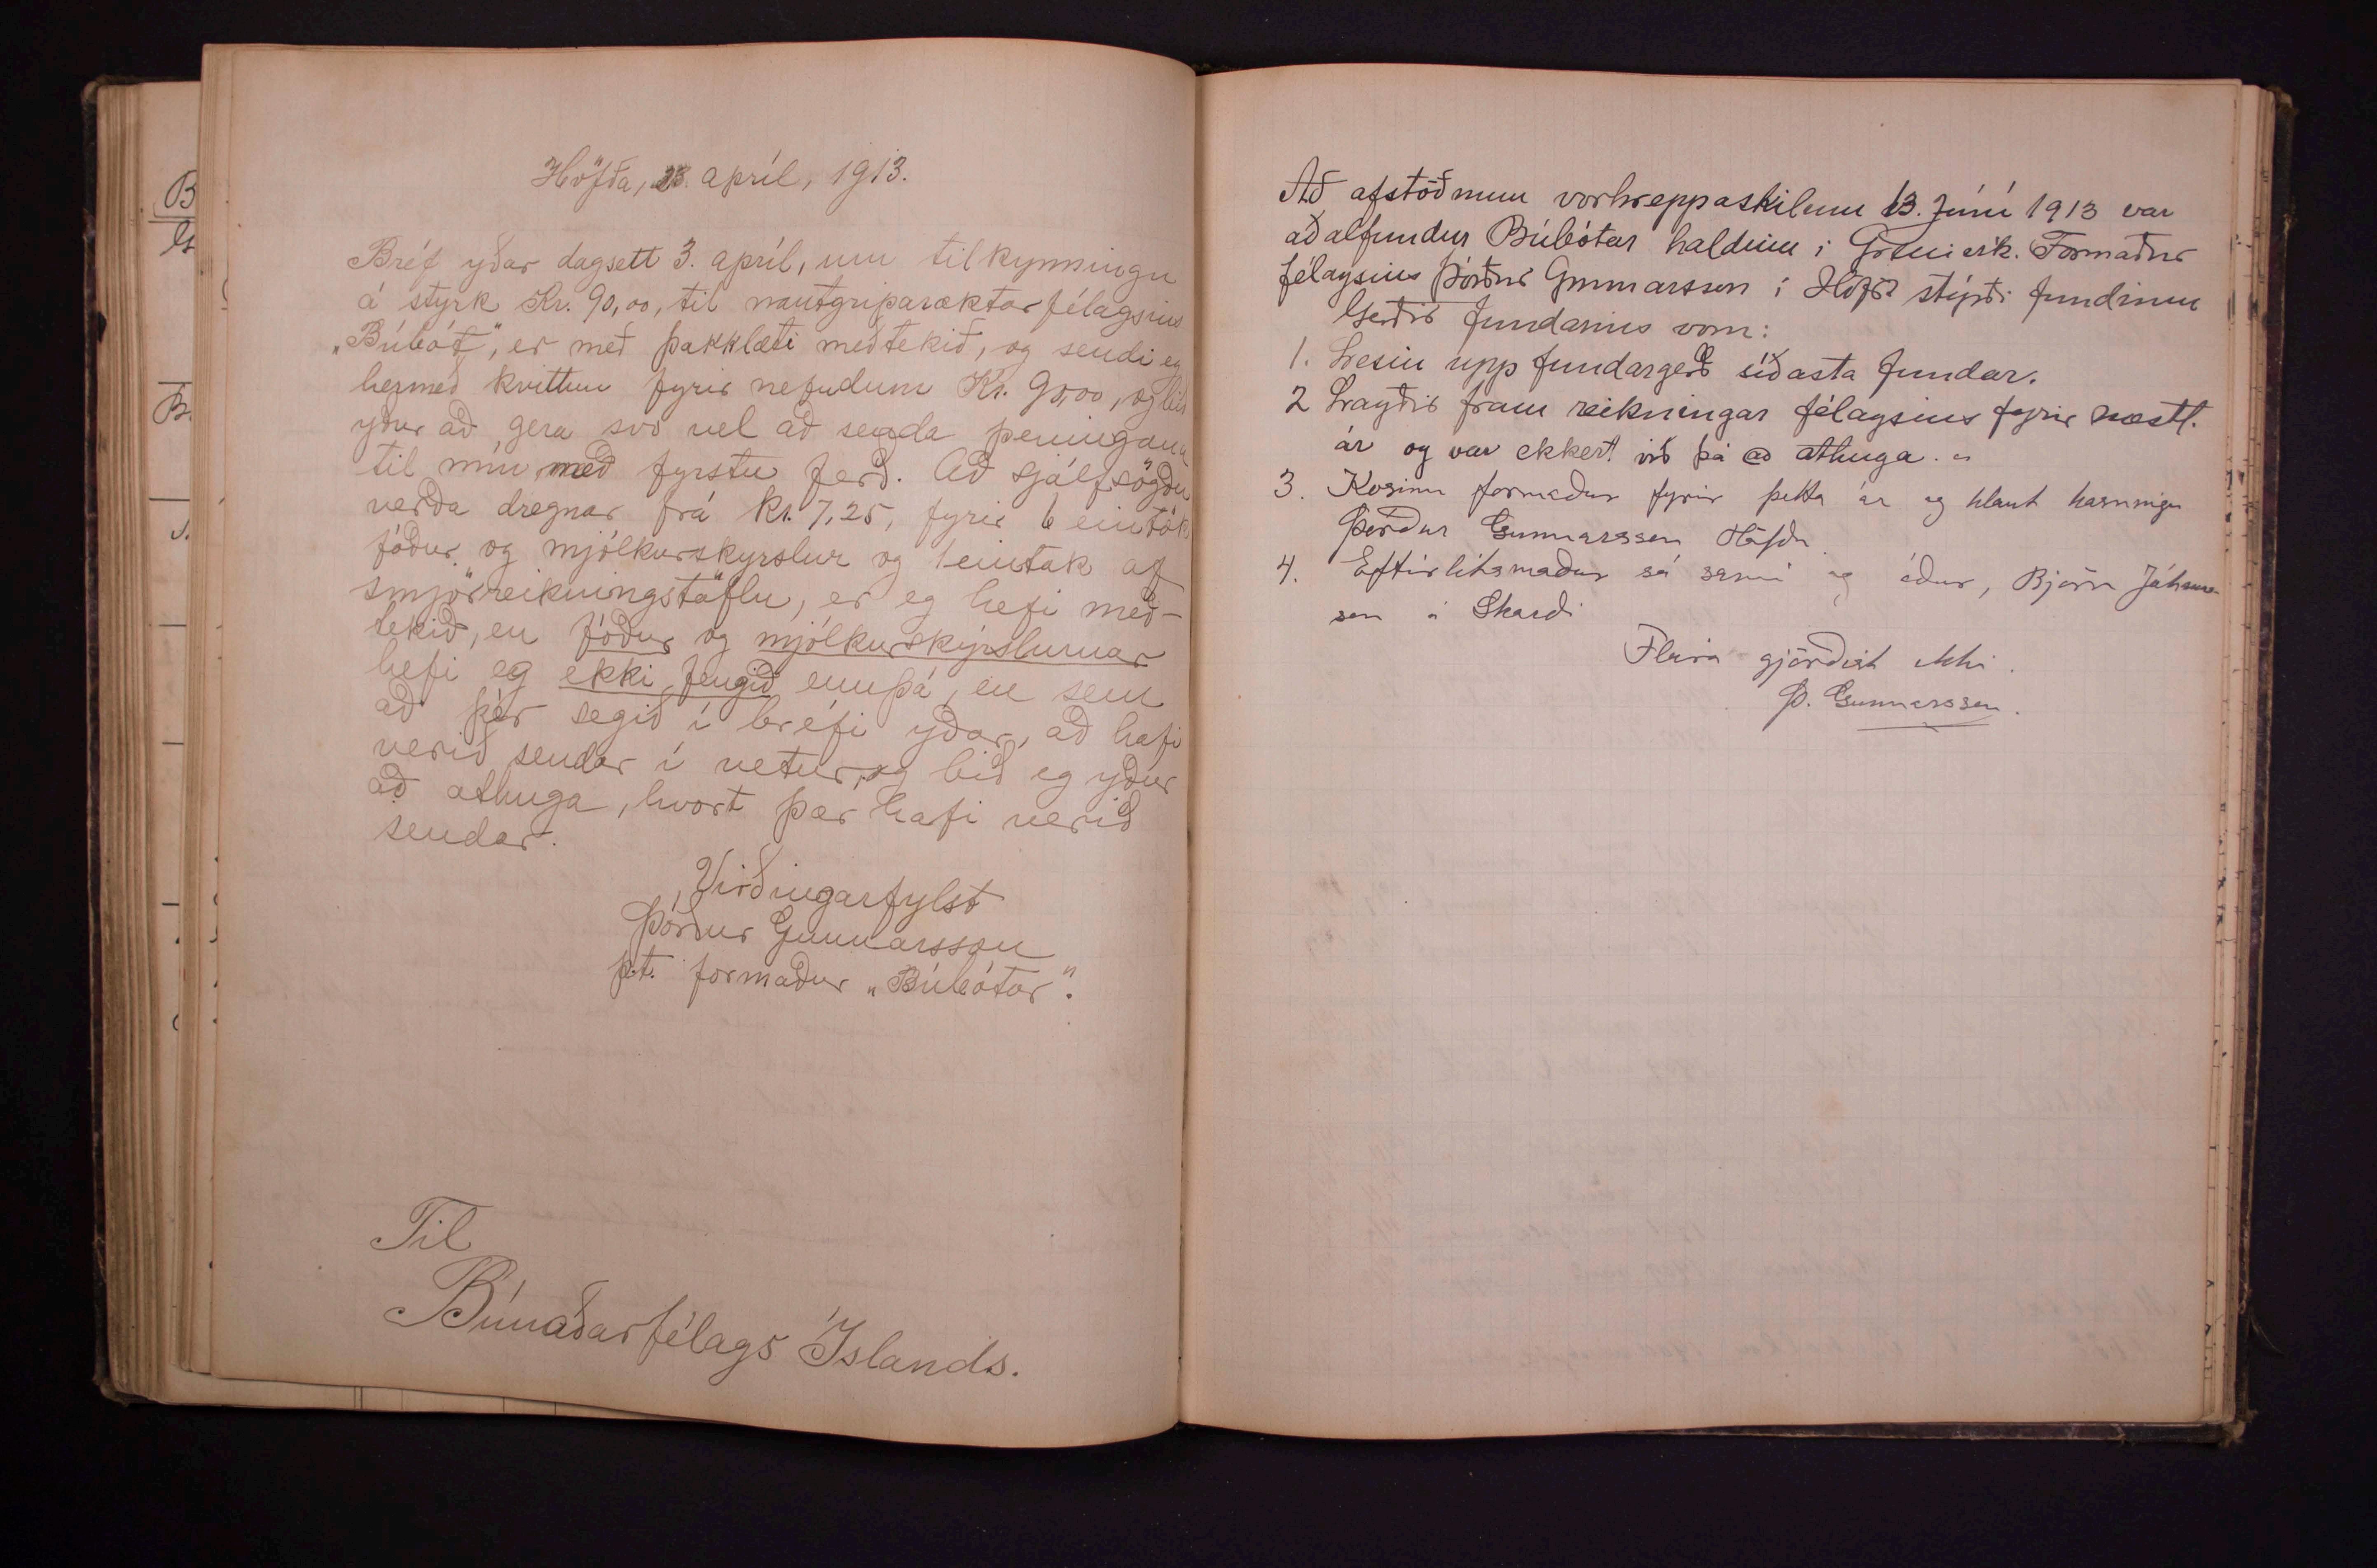 Höfða, 23. apríl, 1913.
Bréf yðar dagsett 3. apríl, um tilkynningu
á styrk Kr. 90,00, til nautgriparæktarfélagsins
„Búbót", er með þakklæti meðtekið, og sendi eg
hermeð kvittun fyrir nefndum Kr. 90,00, og bið
yður að gera svo vel að senda peningana
til mín með fyrstu ferð. Að sjálfsögðu
verða dregnar frá kr. 7,25, fyrir 6 eintök
fóður og mjólkurskyrslur og 1 eintak af
smjörreikningstöflu, er eg hefi með-
tekið, en fóður og mjólkurskýrslurnar
hefi eg ekki fengið ennþá, en sem
að þér segið í bréfi yðar, að hafi
verið sendar í vetur, og bið eg yður
að athuga, hvort þær hafi verið
sendar.
Virðingarfylst
Þórður Gunnarsson
p.t. formaður „Búbótar".
Til
Búnaðarfélags Íslands.
Að afstöðnum vorhreppaskilum 13. Júní 1913 var
aðalfundur Búbótar haldinn í Grenivík. Formaður
félagsins Þórður Gunnarsson í Höfða stýrði fundinum
Gerðir fundarins voru:
1. Lesin upp fundargerð síðasta fundar.
2 Lagðir fram reikningar félagsins fyrir næstl.
ár og var ekkert við þá að athuga.
3. Kosinn formaður fyrir þetta ár og hlaut kosningu
Þórður Gunnarsson Höfða.
4. Eftirlitsmaður sá sami og áður, Björn Jóhanns-
son á Skarði
Fleira gjörðist ekki.
Þ. Gunnarsson.